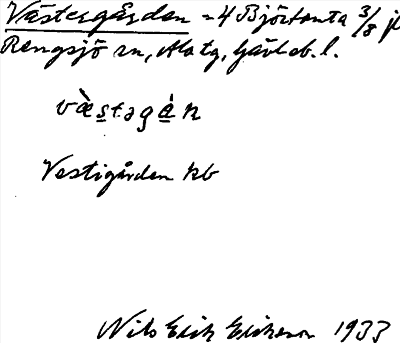 Västergården = 4 Björtomta 3/8 jl
Rengsjö sn, Ala tg, Gävleb. l.
västagán
Vestigården kb
Nils Erik Eriksson 1933